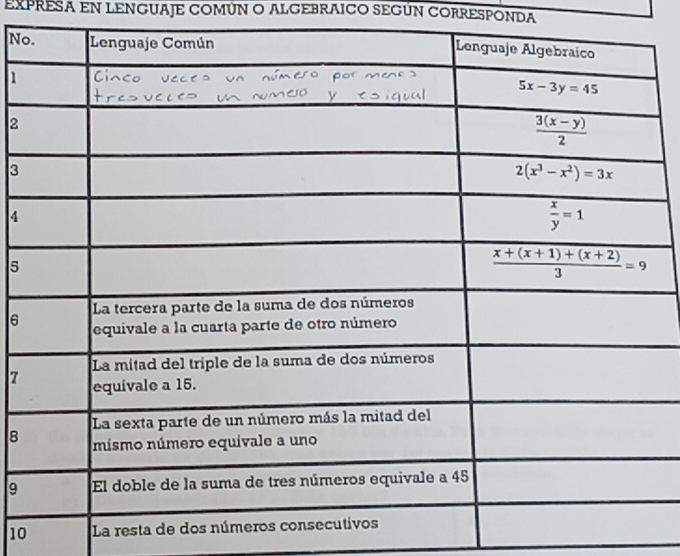 EXPRESA EN LENGUAJE COMÚN O ALGEBRAICO SEGÚN CORRESPONDA
No. Lenguaje Común Lenguaje Algebraico
1 Cinco veces un número por menos
tres veces un numero y es igual 5x − 3y = 45
2 3(x − y)
2
3 2(x³ − x²) = 3x
4 x
y = 1
5 x + (x + 1) + (x + 2)
3 = 9
6 La tercera parte de la suma de dos números
equivale a la cuarta parte de otro número
7 La mitad del triple de la suma de dos números
equivale a 15.
8 La sexta parte de un número más la mitad del
mismo número equivale a uno
9 El doble de la suma de tres números equivale a 45
10 La resta de dos números consecutivos